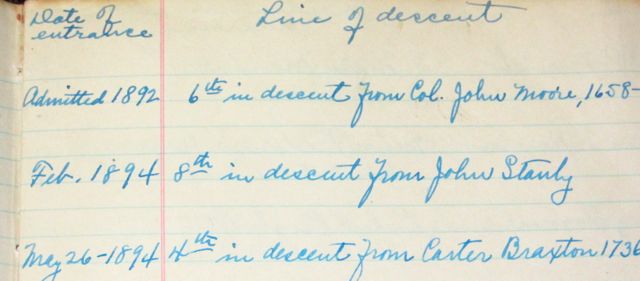 Date of
entrance
Line of descent
Admitted 1892 6th in descent from Col. John Moore, 1658-
Feb. 1894 8th in descent from John Stanly
May 26-1894 4th in descent from Carter Braxton 1736